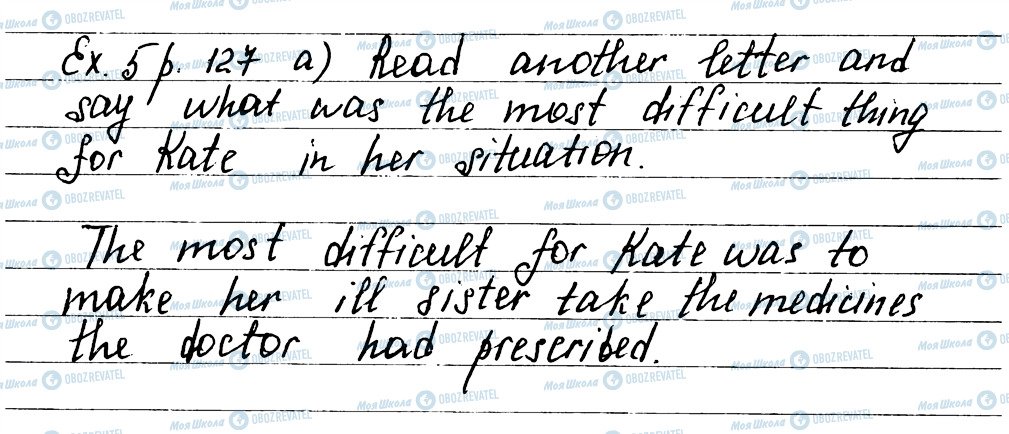 Ex. 5 p. 127 a) Read another letter and
say what was the most difficult thing
for Kate in her situation.
The most difficult for Kate was to
make her ill sister take the medicines
the doctor had prescribed.